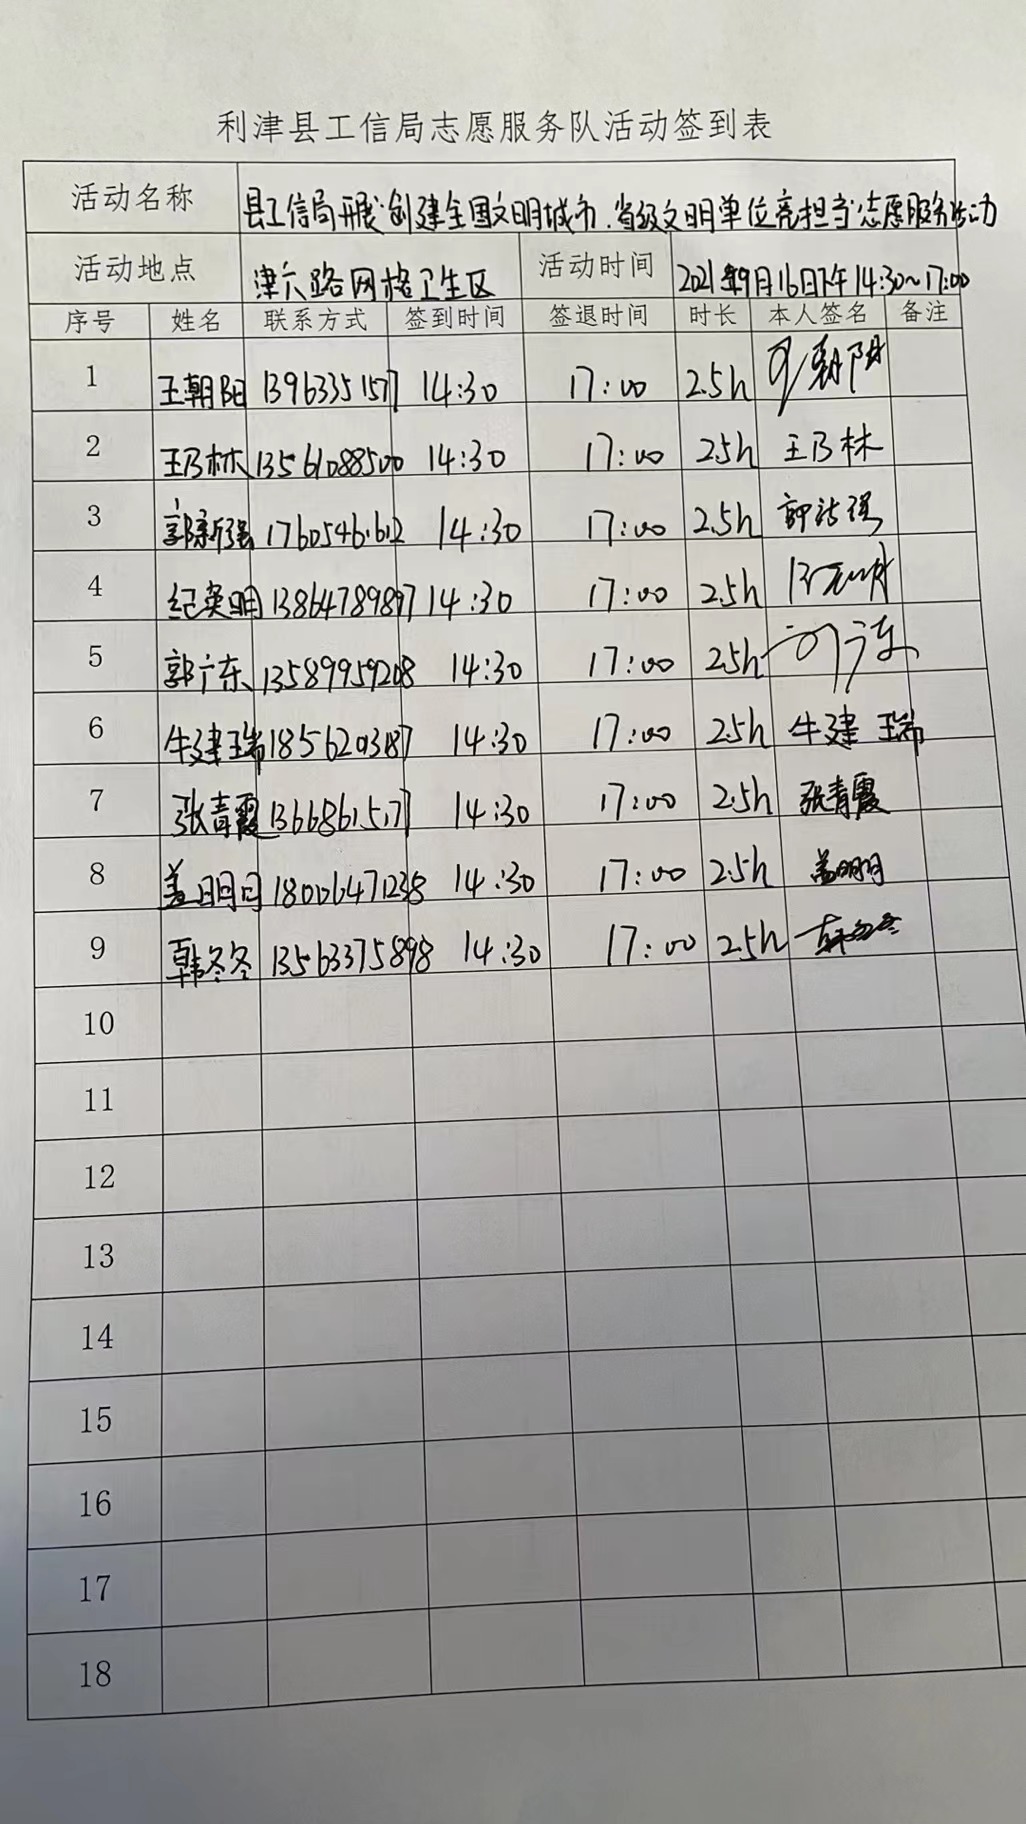 利津县工信局志愿服务队活动签到表
活动名称 县工信局开展"创建全国文明城市、省级文明单位亮担当"志愿服务活动
活动地点 津六路网格卫生区 活动时间 2021年9月16日下午14:30~17:00
序号 姓名 联系方式 签到时间 签退时间 时长 本人签名 备注
1 王朝阳 13963351577 14:30 17:00 2.5h 王朝阳
2 王乃林 13561088500 14:30 17:00 2.5h 王乃林
3 郭新强 17605461612 14:30 17:00 2.5h 郭新强
4 纪奕明 13864789897 14:30 17:00 2.5h
5 郭广东 13589959208 14:30 17:00 2.5h
6 牛建瑞 1856203187 14:30 17:00 2.5h 牛建瑞
7 张青霞 13668615177 14:30 17:00 2.5h 张青霞
8 盖明月 18006471238 14:30 17:00 2.5h 盖明月
9 韩冬冬 13563375898 14:30 17:00 2.5h 韩冬冬
10
11
12
13
14
15
16
17
18